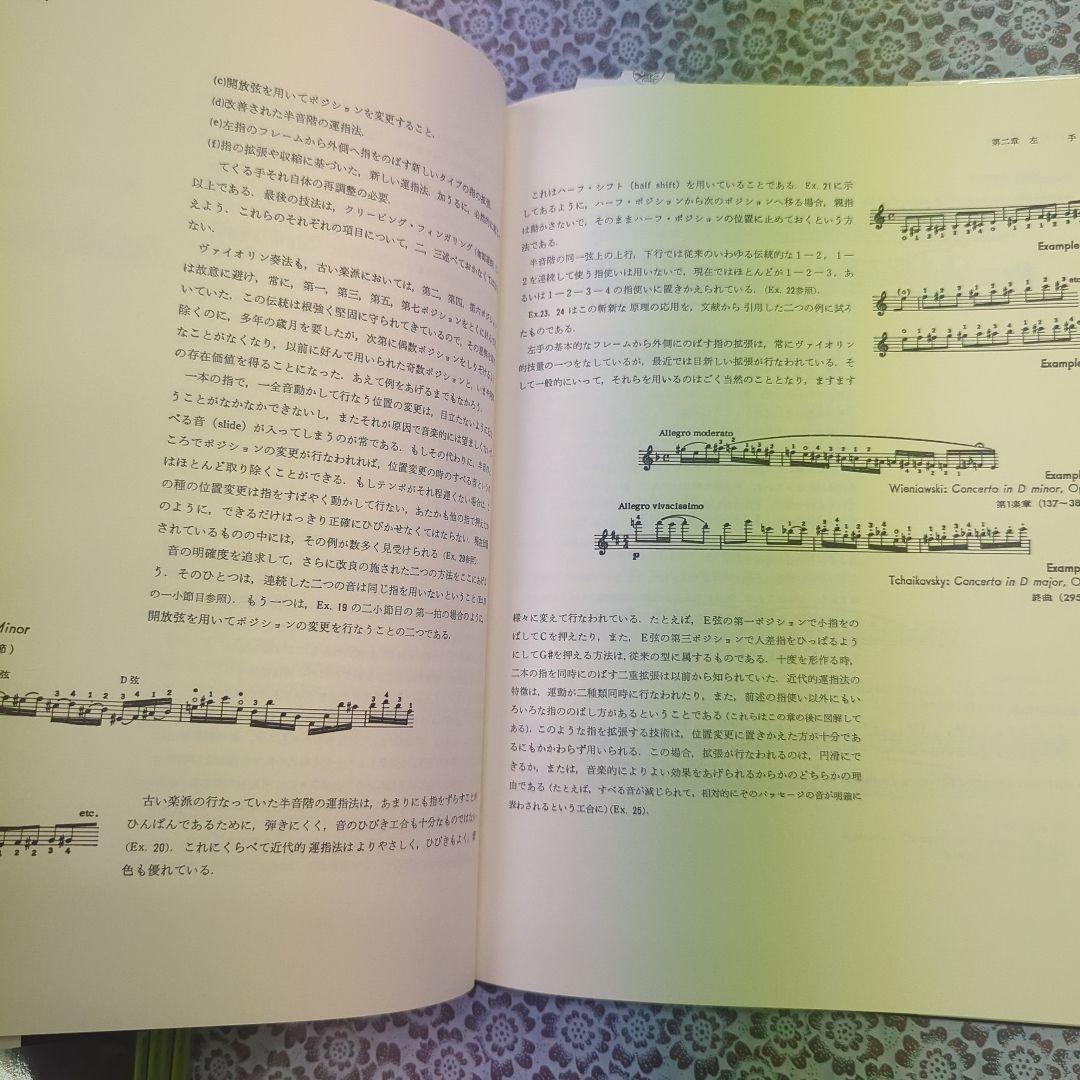 (c)開放弦を用いてポジションを変更すること,
(d)改善された半音階の運指法.
(e)左指のフレームから外側へ指をのばす新しいタイプの指の拡張.
(f)指の拡張や収縮に基づいた, 新しい運指法. 加うるに, 必然的に
てくる手それ自体の再調整の必要.
以上である. 最後の技法は, クリーピング・フィンガリング
えよう. これらのそれぞれの項目について, 二, 三述べておかなくては
ない.
ヴァイオリン奏法も, 古い楽派においては, 第二, 第四, 第六ポジション
は故意に避け, 常に, 第一, 第三, 第五, 第七ポジションをとくに好んで
いていた. この伝統は根強く堅固に守られてきているので, その
除くのに, 多年の歳月を要したが, 次第に偶数ポジションをしりぞける
なことがなくなり, 以前に好んで用いられた奇数ポジションと, いまや
の存在価値を得ることになった. あえて例をあげるまでもなかろう.
一本の指で, 一全音動かして行なう位置の変更は, 目立たないように
うことがなかなかできないし, またそれが原因で音楽的には望ましくない
べる音 (slide) が入ってしまうのが常である. もしその代わりに, 半音の
ころでポジションの変更が行なわれれば, 位置変更の時のすべる音という
はほとんど取り除くことができる. もしテンポがそれ程遅くない場合は,
の種の位置変更は指をすばやく動かして行ない, あたかも他の指で押えた
のように, できるだけはっきり正確にひびかせなくてはならない. 現在
されているものの中には, その例が数多く見受けられる (Ex. 20参照).
音の明確度を追求して, さらに改良の施された二つの方法をここにあげ
う. そのひとつは, 連続した二つの音は同じ指を用いないということ
の一小節目参照). もう一つは, Ex. 19 の二小節目の 第一拍の場合のように
開放弦を用いてポジションの変更を行なうことの二つである.
Minor
節)
弦
D 弦
etc.
古い楽派の行なっていた半音階の運指法は, あまりにも指をずらすことが
ひんぱんであるために, 弾きにくく, 音のひびき工合も十分なものではない
(Ex. 20). これにくらべて近代的 運指法は よりやさしく, ひびきもよく, 音
色も優れている.
第二章 左 手
これはハーフ・シフト (half shift) を用いていることである. Ex. 21に示
してあるように, ハーフ・ポジションから次のポジションへ移る場合, 親指
は動かさないで, そのままハーフ・ポジションの位置に止めておくという方
法である.
半音階の同一弦上の上行, 下行では従来のいわゆる伝統的な1－2, 1－
2を連続して使う指使いは用いないで, 現在ではほとんどが1－2－3, あ
るいは1－2－3－4の指使いに置きかえられている. (Ex. 22参照).
Ex.23, 24 はこの斬新な 原理の応用を, 文献から 引用した二つの例に試み
たものである.
左手の基本的なフレームから外側にのばす指の拡張は, 常にヴァイオリン
的技量の一つをなしているが, 最近では目新しい拡張が行なわれている. そ
して一般的にいって, それらを用いるのはごく当然のこととなり, ますます
Example
etc
Example
Allegro moderato
Example
Wieniawski: Concerto in D minor, Op
第1楽章 (137～38
Allegro vivacissimo
p
Example
Tchaikovsky: Concerto in D major, O
終曲 (295
様々に変えて行なわれている. たとえば, E弦の第一ポジションで小指をの
ばしてCを押えたり, また, E弦の第三ポジションで人差指をひっぱるよう
にしてG#を押える方法は, 従来の型に属するものである. 十度を形作る時,
二本の指を同時にのばす二重拡張は以前から知られていた. 近代的運指法の
特徴は, 運動が二種類同時に行なわれたり, また, 前述の指使い以外にもい
ろいろな指ののばし方があるということである (これらはこの章の後に図解して
ある). このような指を拡張する技術は, 位置変更に置きかえた方が十分であ
るにもかかわらず用いられる. この場合, 拡張が行なわれるのは, 円滑にで
きるか, または, 音楽的によりよい効果をあげられるからかのどちらかの理
由である (たとえば, すべる音が減じられて, 相対的にそのパッセージの音が明確に
表わされるという工合に) (Ex. 25).